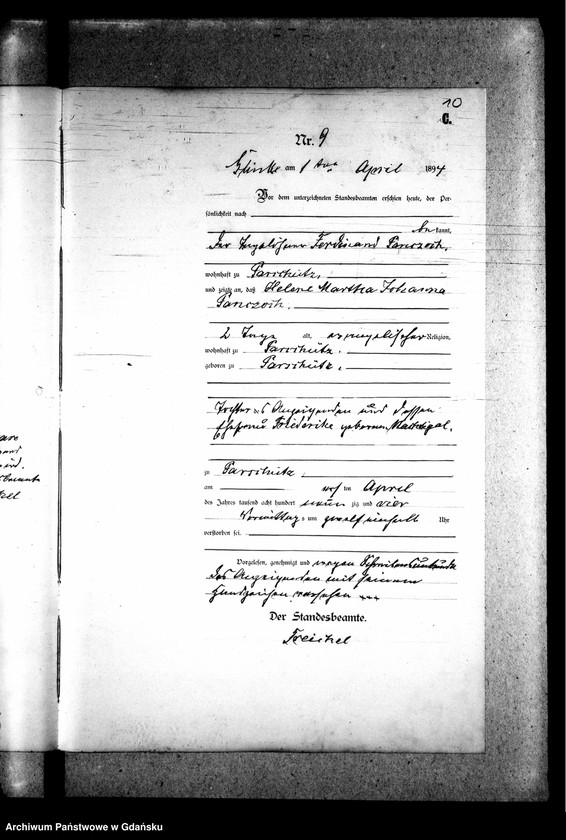 10
C.
Nr. 9
am 1 ten April 1894
Vor dem unterzeichneten Standesbeamten erschien heute, der Per-
sönlichkeit nach
be kannt,
der Ferdinand Panczoch,
wohnhaft zu Parschütz,
und zeigte an, daß Helene Martha Johanna
Panczoch.
2 Tage alt, evangelischer Religion,
wohnhaft zu Parschütz.
geboren zu Parschütz,
Tochter des Anzeigenden und dessen
Ehefrau Friederike geborenen
zu Parschütz
am ten April
des Jahres tausend acht hundert neun zig und vier
Vormittags um zwölf einhalb Uhr
verstorben sei.
Vorgelesen, genehmigt und wegen Schreibensunkunde
des Anzeigenden mit seinem
Handzeichen versehen +++
Der Standesbeamte.
Archiwum Państwowe w Gdańsku